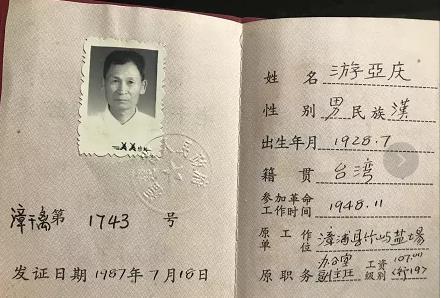 漳离第 1743 号
发证日期 1987年7月18日
姓名 游亞庆
性别 男 民族 漢
出生年月 1928.7
籍贯 台湾
参加革命工作时间 1948.11
原工作单位 漳浦县竹屿盐場
原职务 办公室副主任 工资级别